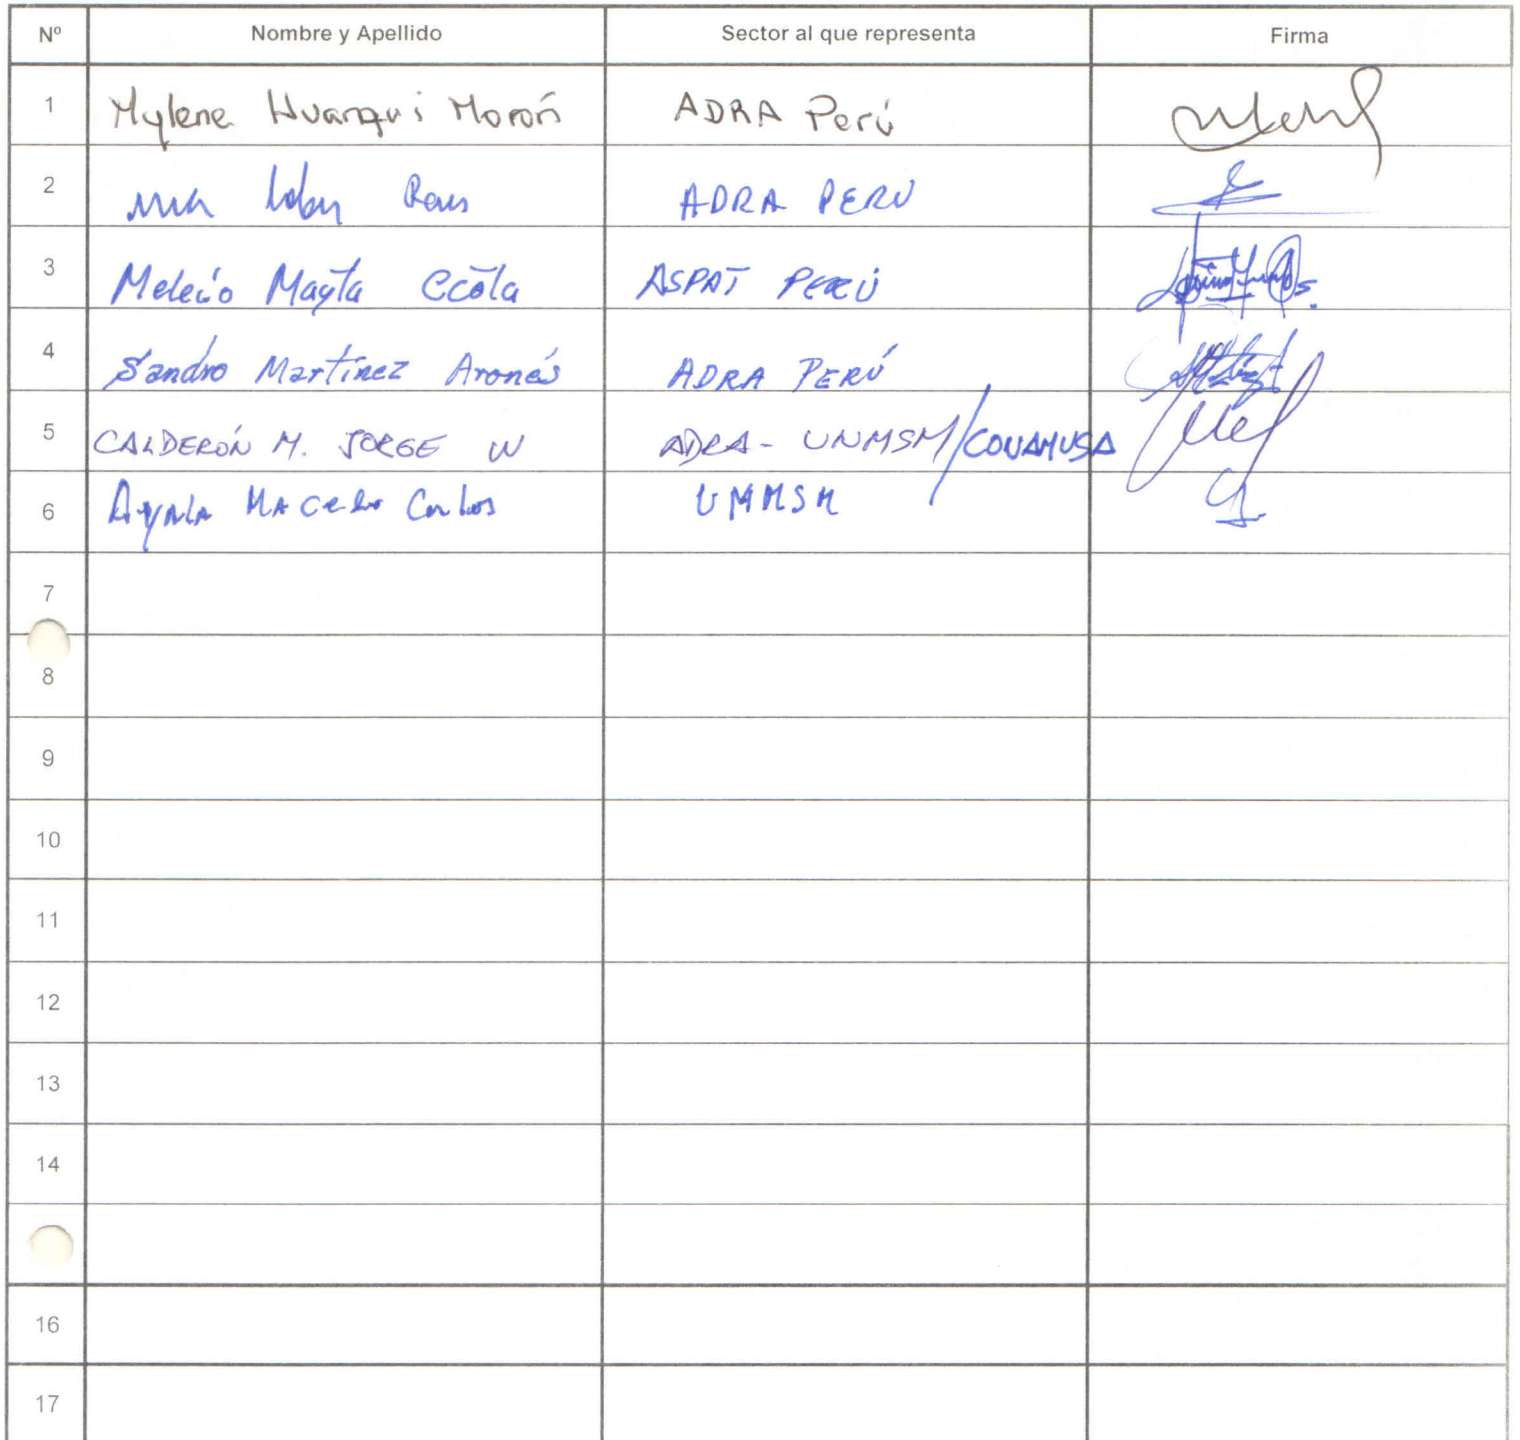 Nº Nombre y Apellido Sector al que representa Firma
1 Mylene Huarqui Morón ADRA Perú
2 ADRA PERU
3 Melecio Mayta Ccota ASPAT PERÚ
4 Sandro Martínez Aronés ADRA PERÚ
5 CALDERÓN M. JORGE W ADRA - UNMSM/CONAMUSA
6 Ayala Macedo Carlos UNMSM
7
8
9
10
11
12
13
14
16
17